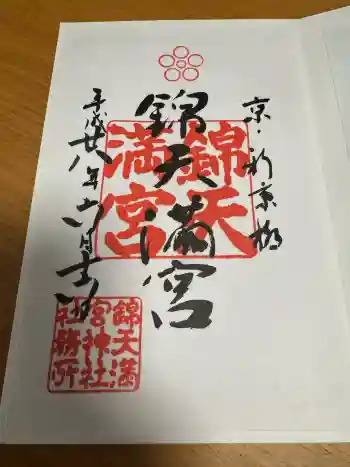 京・新京極
錦天満宮
平成廿八年六月十六日
錦天
満宮
錦天満
宮神社
社務所